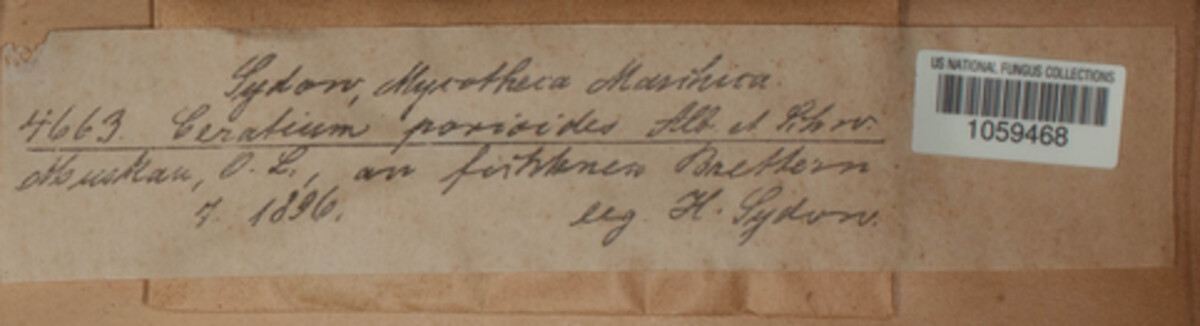 Sydow, Mycotheca Marchica.
4663. Ceratium porioides Alb. et Schw.
Muskau, O. L., an fichtenen Brettern
7. 1896. leg. H. Sydow.
US NATIONAL FUNGUS COLLECTIONS
1059468